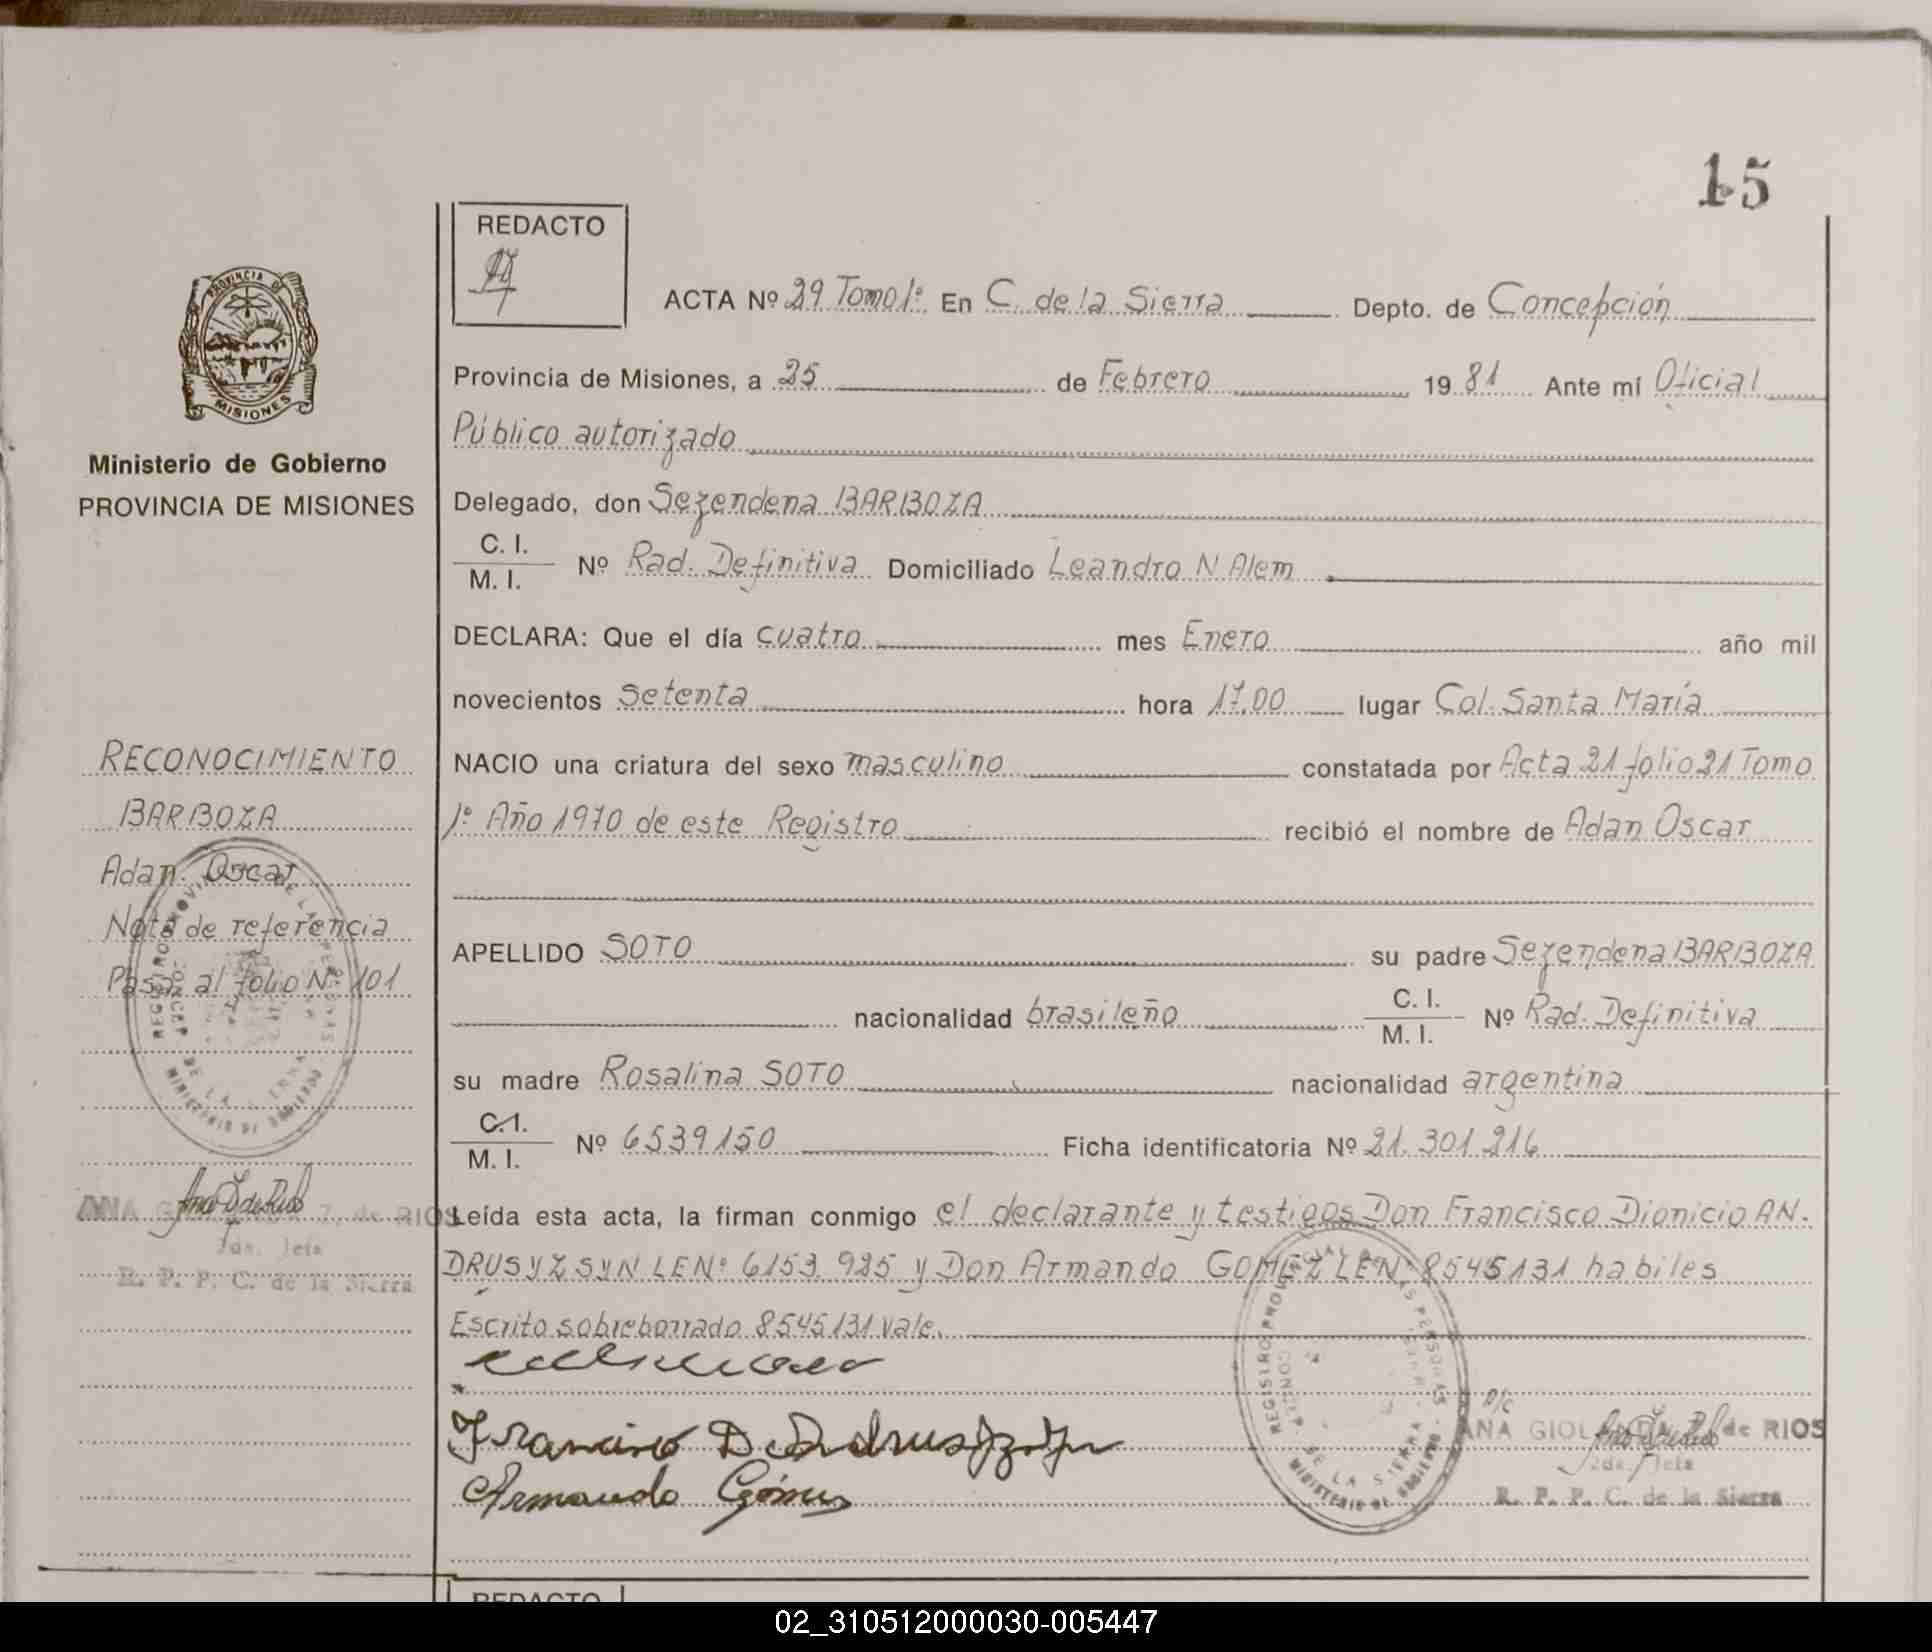 15
REDACTO
ACTA Nº 29 Tomo 1º En C. de la Sierra Depto. de Concepción
Provincia de Misiones, a 25 de Febrero 19 81 Ante mí Oficial
Público autorizado
PROVINCIA DE
MISIONES
Ministerio de Gobierno
PROVINCIA DE MISIONES
Delegado, don Sezendena BARBOZA
C. I.
M. I. Nº Rad. Definitiva Domiciliado Leandro N Alem
DECLARA: Que el día cuatro mes Enero año mil
novecientos setenta hora 17.00 lugar Col. Santa María
NACIO una criatura del sexo masculino constatada por Acta 21 folio 21 Tomo
1º Año 1970 de este Registro recibió el nombre de Adan Oscar
APELLIDO SOTO su padre Sezendena BARBOZA
nacionalidad brasileño C. I.
M. I. Nº Rad. Definitiva
su madre Rosalina SOTO nacionalidad argentina
C. I.
M. I. Nº 6539150 Ficha identificatoria Nº 21.301.216
Leída esta acta, la firman conmigo el declarante y testigos Don Francisco Dionicio AN-
DRUSYZSYN LE Nº 6153.925 y Don Armando GOMEZ LE Nº 8545131 habiles
Escrito sobreborrado 8545131 vale.
Armando Gómez
P/C
ANA de RIOS
2da. Jefa
R. P. P. C. de la Sierra
REGISTRO PROVINCIAL DE LAS PERSONAS
CONCEPCION DE LA SIERRA
MINISTERIO DE GOBIERNO
RECONOCIMIENTO
BARBOZA
Adan Oscar
Nota de referencia
Pasa al folio Nº 101
REGISTRO PROVINCIAL DE LAS PERSONAS
CONCEPCION DE LA SIERRA
MINISTERIO DE GOBIERNO
ANA de RIOS
2da. Jefa
R. P. P. C. de la Sierra
REDACTO
02_310512000030-005447